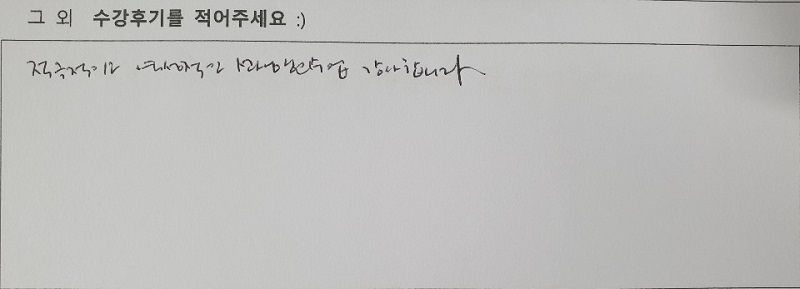 그 외 수강후기를 적어주세요 :)
적극적이고 열성적인 수업 감사합니다